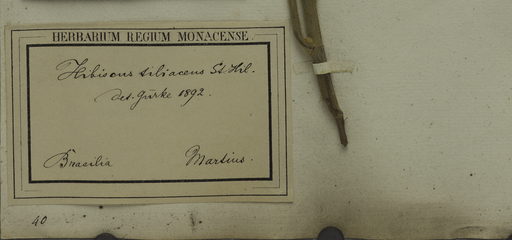 HERBARIUM REGIUM MONACENSE.
Hibiscus tiliaceus St Hil.
det. Gürke 1892.
Brasilia Martius.
40